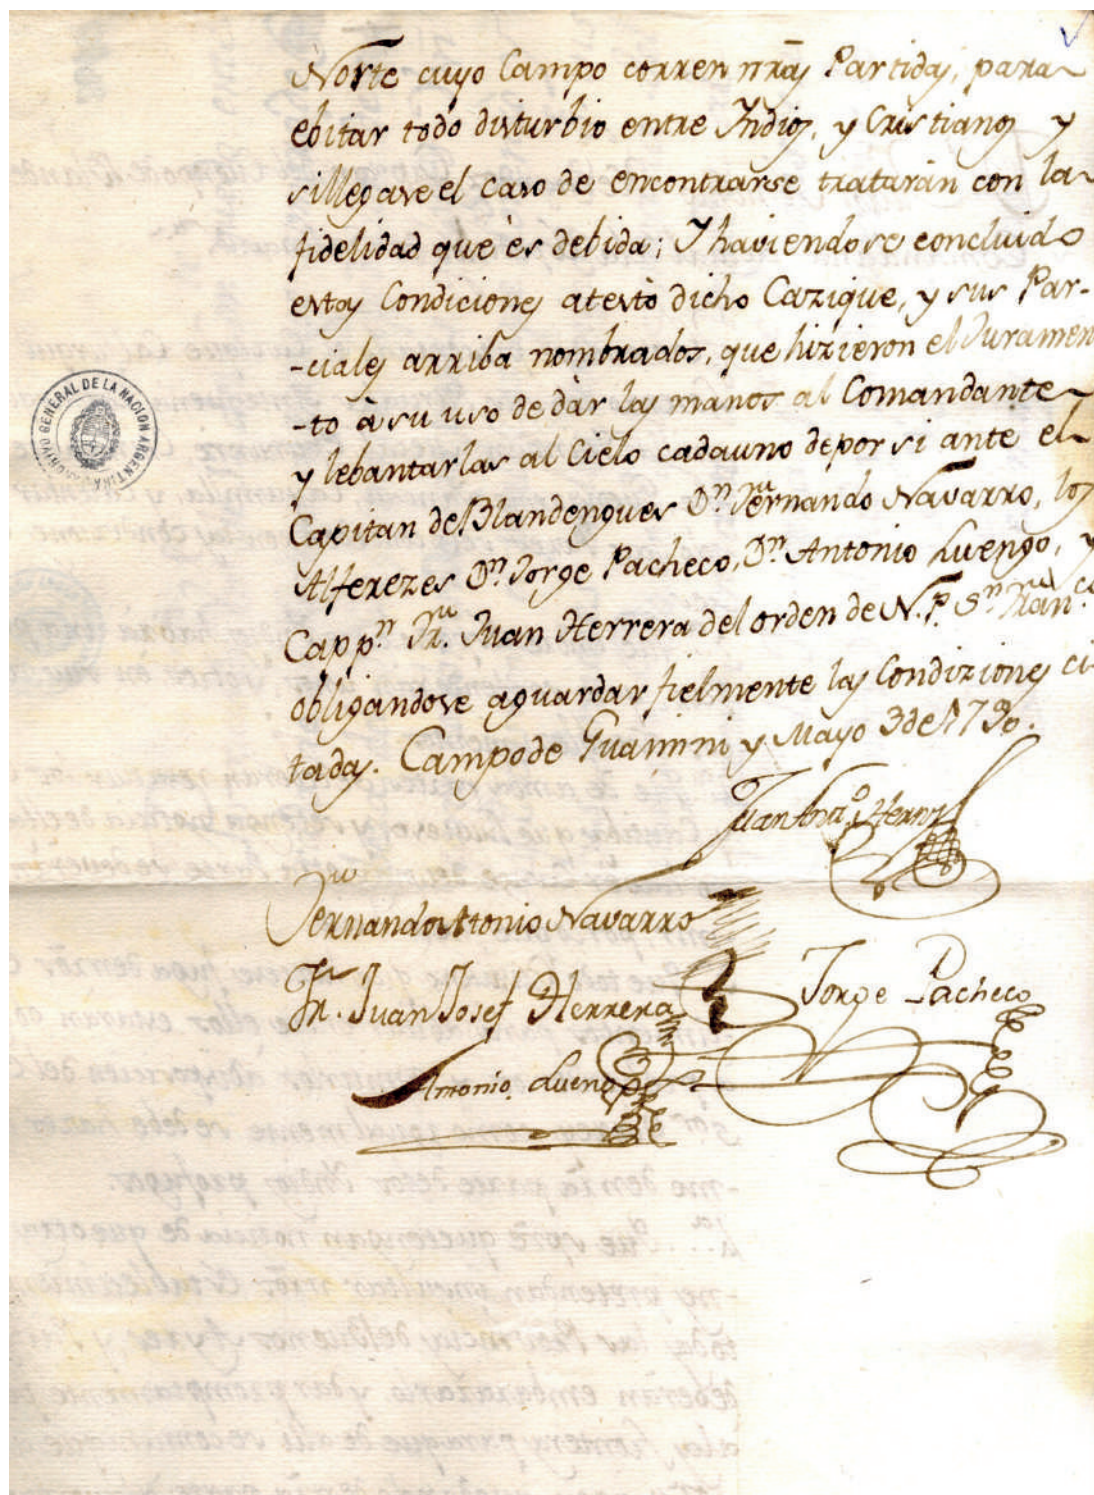 Norte cuyo Campo corren nrãs Partidas, para
ebitar todo disturbio entre Yndios, y Cristianos y
sillegase el caso de encontrarse tratarán con la
fidelidad que ès debida; Y haviendose concluido
estas Condiciones atestò dicho Cazique, y sus Par-
-ciales arriba nombrados, que hizieron el Juramen
-to à su uso de dàr las manos al Comandante
y lebantarlas al Cielo cadauno depor si ante el
Capitan de Blandengues Dn. Fernando Navarro, los
Alferezes Dn. Jorge Pacheco, Dn. Antonio Luengo, y
Cappn. Fr. Juan Herrera del orden de N. P. Sn. Franco
obligandose aguardar fielmente las Condiziones ci
tadas. Campo de Guamini y Mayo 3 de 1790.
Juan Anto. Hernz
Fernando Antonio Navarro
Fr. Juan Josef Herrera
Jorge Pacheco
Antonio Luengo
ARCHIVO GENERAL DE LA NACION ARGENTINA